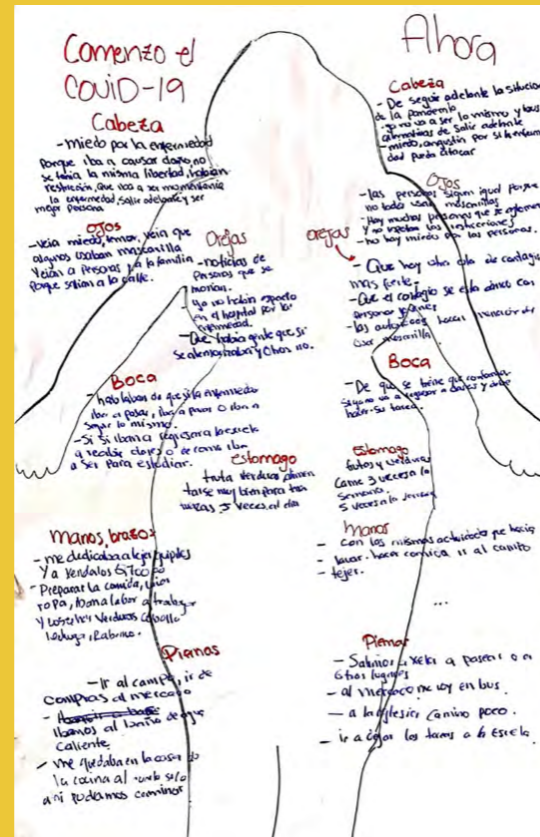 Comenzo el
COVID-19
Cabeza
- miedo por la enfermedad
Porque iba a causar daño, no
se tenia la misma libertad, habian
restricción, que iba a ser momentanea
la enfermedad, salir adelante y ser
mejor persona
Ojos
- veia miedo, temor, veia que
algunos usaban mascarilla
veian a personas y a la familia
Porque salian a la calle.
Orejas
- noticias de
Personas que se
morian.
- ya no habia espacio
en el hospital por la
enfermedad.
- Que habia gente que si
se alarmaba y otros no.
Boca
- hablaban de que si la enfermedad
iba a pasar, iba a parar o iba a
seguir lo mismo.
- Si si iban a regresar a la escuela
a recibir clases o de como iba
a ser para estudiar.
Estomago
fruta verduras alimen
tarse muy bien
3 veces al dia
Manos, brazos
- me dedicaba a tejer guipiles
y a venderlos
- Preparar la comida,
ropa, a trabajar
y cosechar verduras cebolla
lechuga, Rabano.
Piernas
- Ir al campo, ir de
compras al mercado
- ibamos al de agua
caliente.
- me quedaba en la casa
la cocina al solo
podiamos caminar
Ahora
Cabeza
- De seguir adelante la situacion
de la pandemia
- ya no va a ser lo mismo y buscar
alternativas de salir adelante
- miedo, angustia por si la enferme
dad pueda atacar
Ojos
- las personas siguen igual porque
no todos usan mascarillas
- Hay muchas personas que se aglomeran
y no respetan las restricciones
- no hay miedo por las personas.
Orejas
- Que hay otra ola de contagio
mas fuerte.
- Que el contagio se esta dando con
personas jovenes
- las autoridades hacen mención de
usar mascarilla.
Boca
- De que se tiene que
seguir a clases y
hacer su tarea.
Estomago
frutas y verduras
Carne 3 veces a la
semana.
5 veces a la semana
Manos
- Con las mismas actividades que hacia
- lavar. hacer comida ir al campo
- tejer.
...
Piernas
- Salimos a Xela a pasear o a
otros lugares
- al mercado me voy en bus.
- a la iglesia camino poco.
- ir a dejar las tareas a la Escuela.